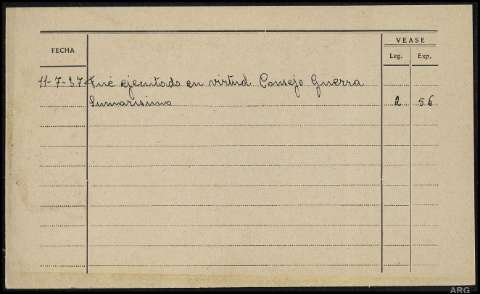 VEASE
FECHA
Leg. Exp.
11-7-37 Fué ejecutado en virtud Consejo Guerra
Sumarisimo 2 56
ARG